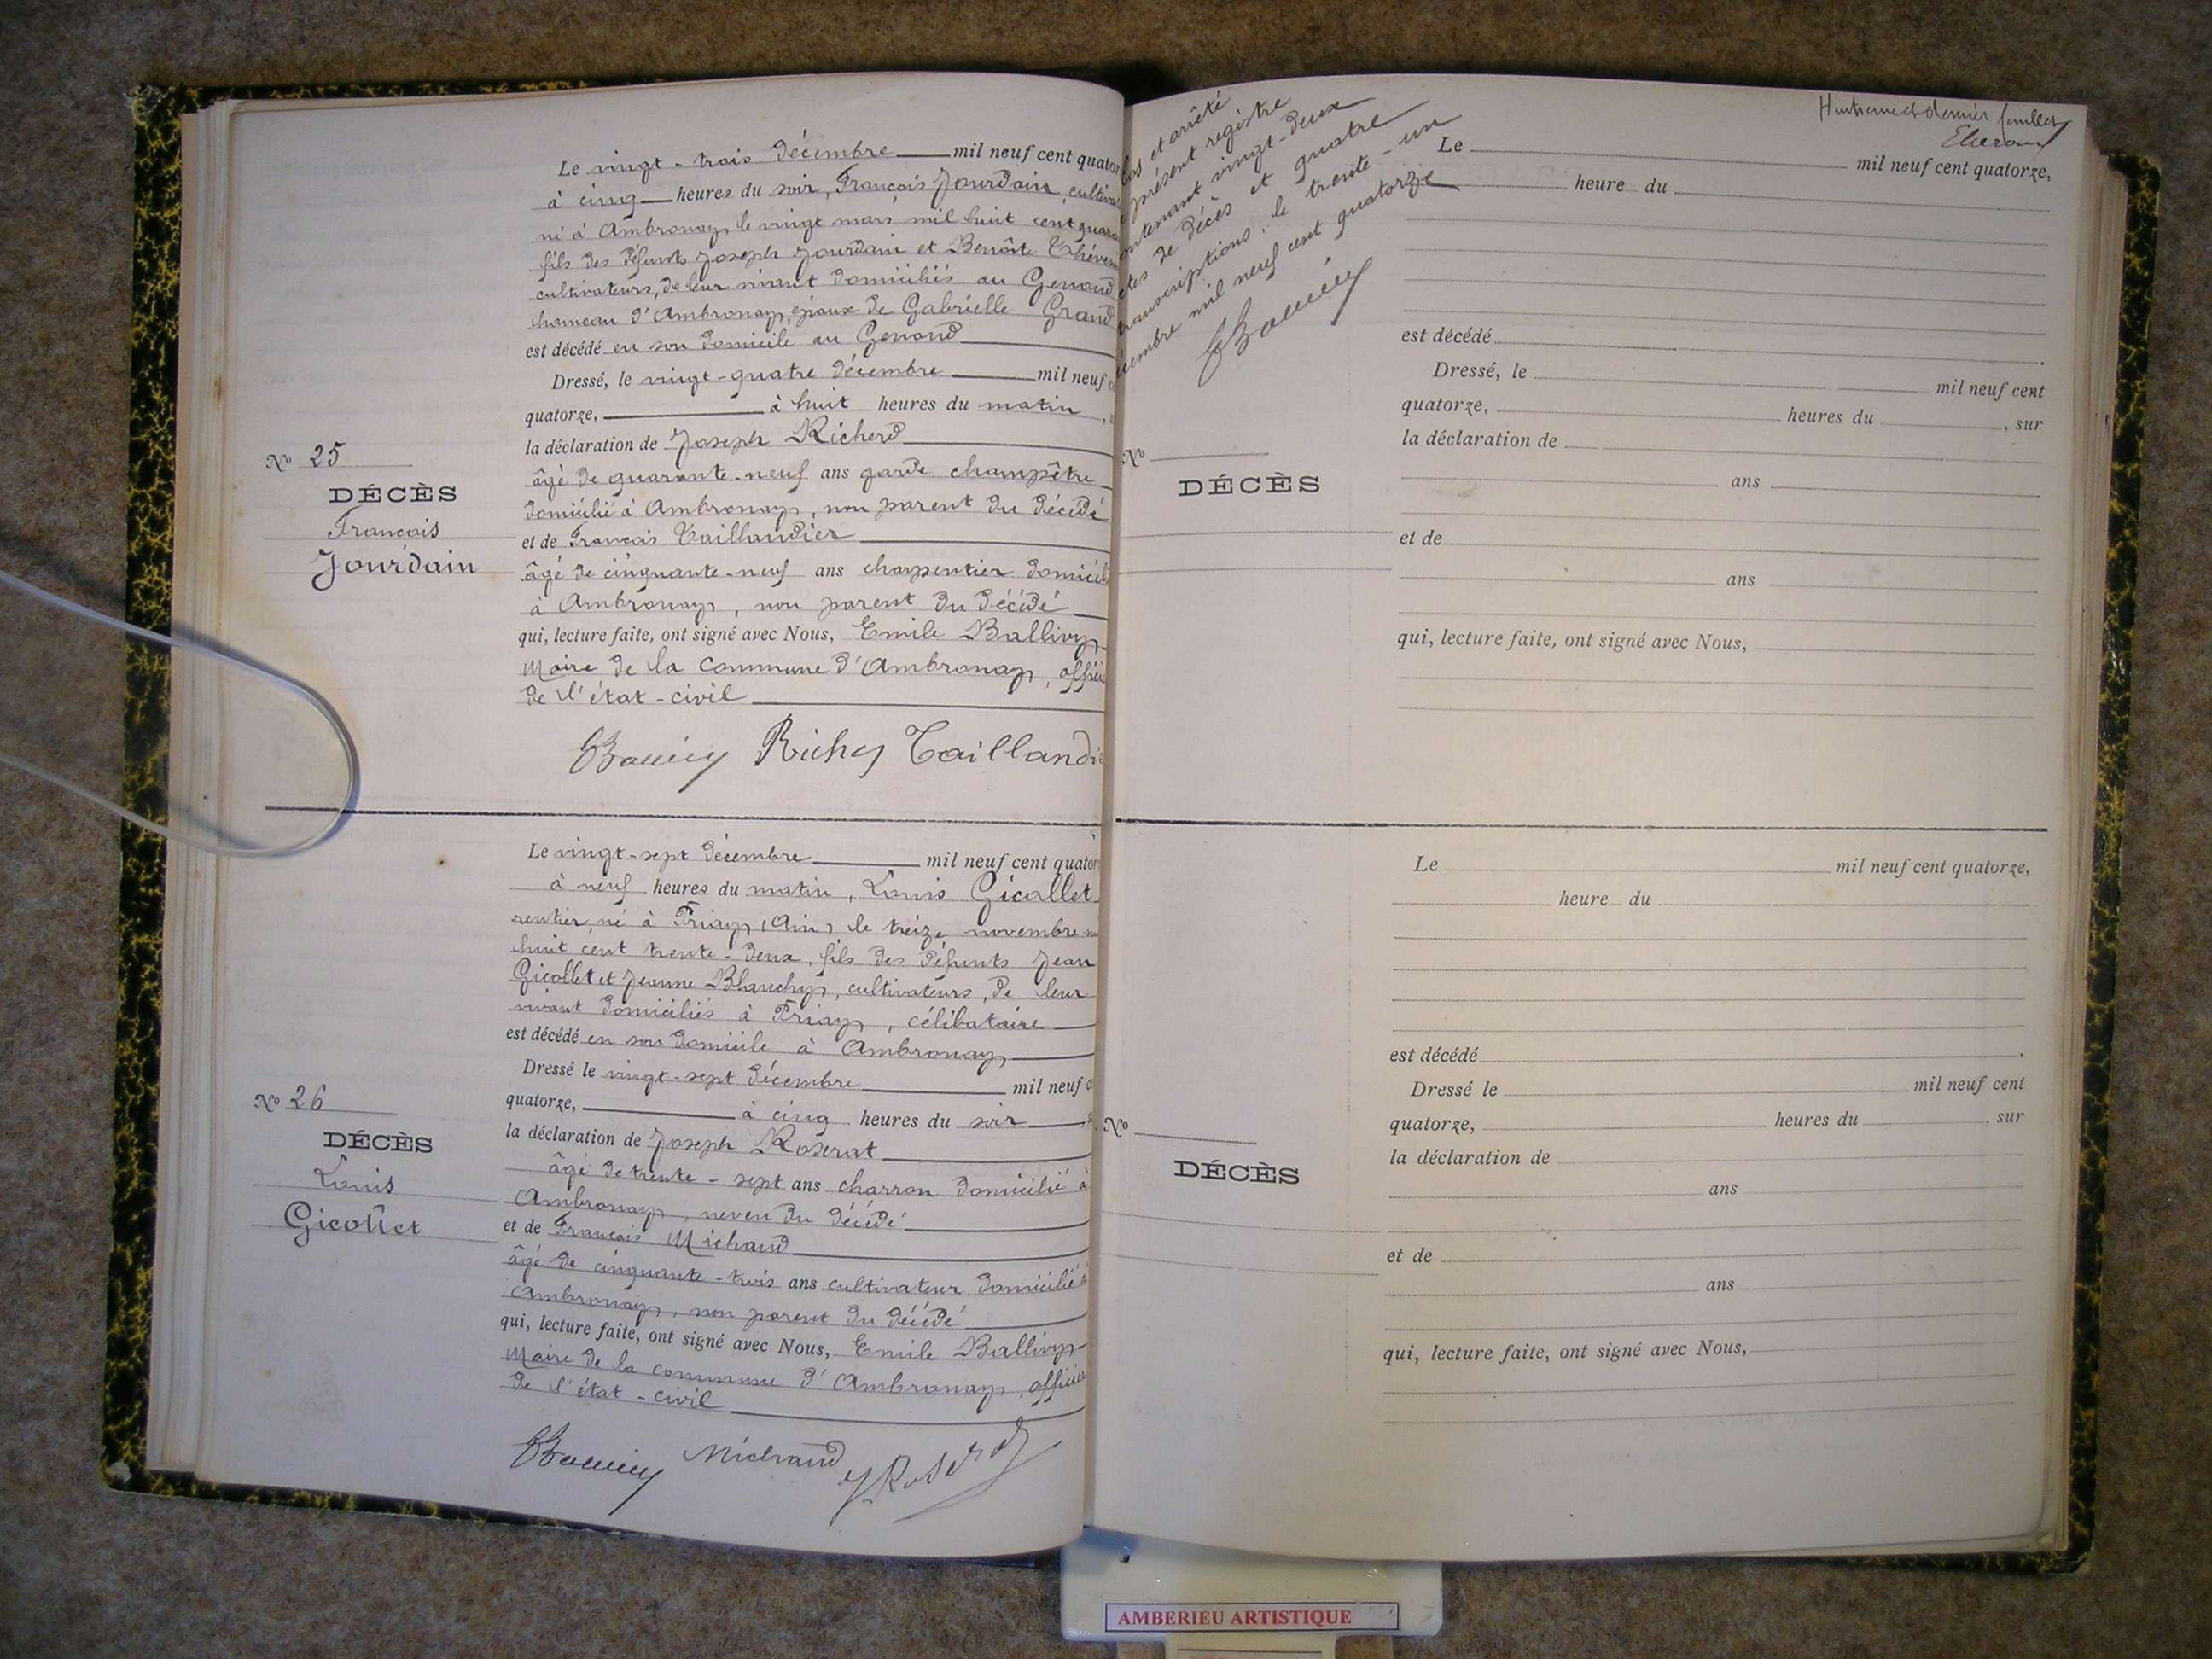 Le vingt-trois décembre mil neuf cent quator
à cinq heures du soir, François Jourdain, cultiva
né à Ambronay le vingt mars mil huit cent quara
fils des défunts Joseph Jourdain et Benoîte Théven
cultivateurs, de leur vivant domiciliés au Genoud
hameau d'Ambronay, époux de Gabrielle Grand
est décédé en son domicile au Genoud
Dressé, le vingt-quatre décembre mil neuf c
quatorze, à huit heures du matin,
la déclaration de Joseph Richerd
âgé de quarante-neuf ans garde champêtre
domicilié à Ambronay, non parent du décédé
et de François Taillandier
âgé de cinquante-neuf ans charpentier domicil
à Ambronay, non parent du décédé
qui, lecture faite, ont signé avec Nous, Emile Ballivy
Maire de la Commune d'Ambronay, offici
de l'état-civil
Taillandi
No 25
DÉCÈS
François
Jourdain
Le vingt-sept décembre mil neuf cent quator
à neuf heures du matin, Louis Gicollet
rentier, né à Priay (Ain) le treize novembre m
huit cent trente-deux, fils des défunts Jean
Gicollet et Jeanne Blanchy, cultivateurs, de leur
vivant domiciliés à Priay, célibataire
est décédé en son domicile à Ambronay
Dressé le vingt-sept décembre mil neuf c
quatorze, à cinq heures du soir
la déclaration de Joseph Roserat
âgé de trente-sept ans charron domicilié à
Ambronay, neveu du décédé
et de François Michaud
âgé de cinquante-trois ans cultivateur domicilié à
Ambronay, non parent du décédé
qui, lecture faite, ont signé avec Nous, Emile Ballivy
Maire de la commune d'Ambronay, officier
de l'état-civil
Michaud J. Roserat
No 26
DÉCÈS
Louis
Gicollet
los et arrêté
présent registre
ontenant vingt-deux
ctes de décès et quatre
transcriptions, le trente-un
écembre mil neuf cent quatorze
EBallivy
Huitième et dernier feuillet
Le mil neuf cent quatorze,
heure du
est décédé
Dressé, le mil neuf cent
quatorze, heures du , sur
la déclaration de
ans
et de
ans
qui, lecture faite, ont signé avec Nous,
No
DÉCÈS
Le mil neuf cent quatorze,
heure du
est décédé
Dressé le mil neuf cent
quatorze, heures du , sur
la déclaration de
ans
et de
ans
qui, lecture faite, ont signé avec Nous,
No
DÉCÈS
AMBERIEU ARTISTIQUE